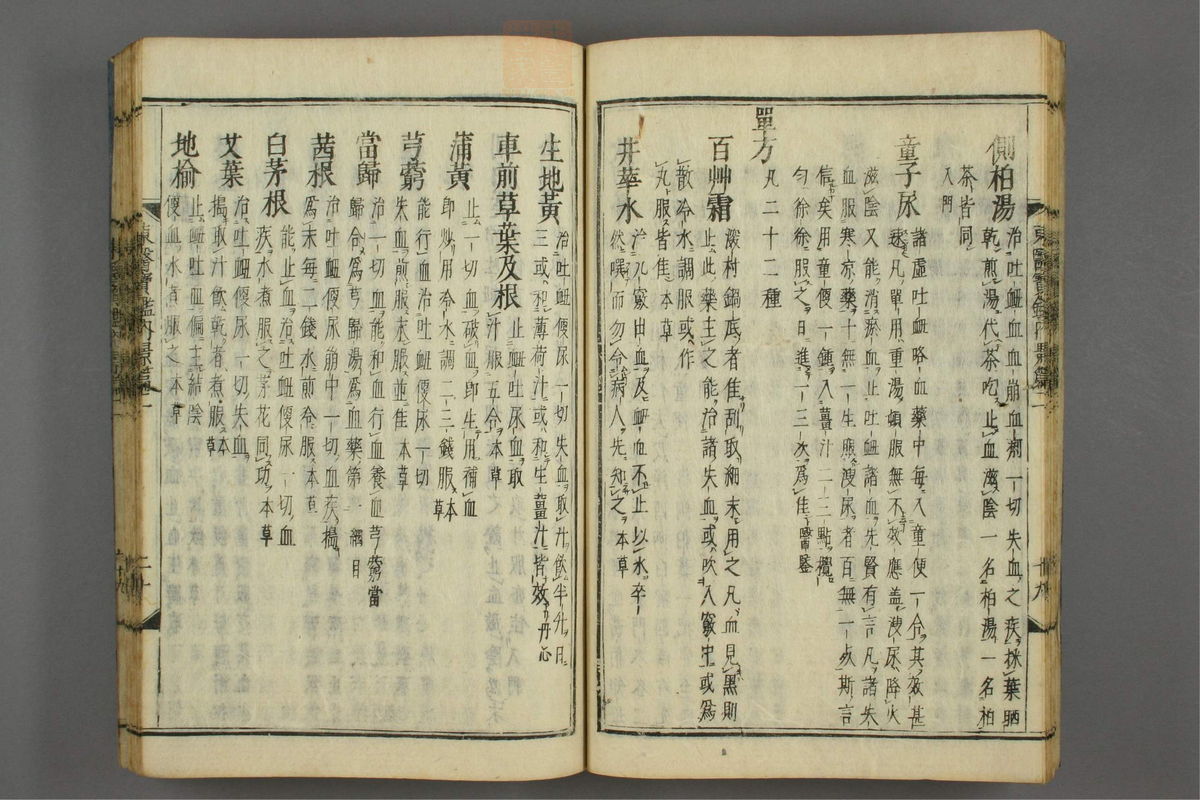 側柏湯 治吐衄血血崩血痢一切失血之疾採葉晒
乾煎湯代茶吃止血滋陰一名柏湯一名柏
茶皆同
入門
童子尿 諸虛吐衄咯血藥中每入童便一合其效甚
速凡單用重湯頓服無不效應盖溲尿降火
滋陰又能消瘀血止吐衄諸血先賢有言凡諸失
血服寒凉藥十無一生服溲尿者百無一死斯言
信矣用童便一鍾入薑汁二三點攪
勻徐徐服之日進二三次爲佳醫鑒
單方
凡二十二種
百艸霜 深村鍋底者佳刮取細末用之凡血見黑則
止此藥主之能治諸失血或吹入竅中或爲
散冷水調服或作
丸服皆佳本草
井華水 治九竅出血及衄血不止以水卒
然噀面勿令病人先知之本草
東醫寶鑑內景篇二
十九
生地黃 治吐衄便尿一切失血取汁飮半升日
三或和薄荷汁或和生薑汁皆效丹心
車前草葉及根 止衄吐尿血取
汁服五合本草
蒲黃 止一切血破血卽生用補血
卽炒用冷水調二三錢服本草
芎藭 能行血治吐衄便尿一切
失血煎服末服並佳本草
當歸 治一切血能和血行血養血芎藭當
歸合爲芎歸湯爲血藥第一綱目
茜根 治吐衄便尿崩中一切血疾搗
爲末每二錢水煎冷服本草
白茅根 能止血治吐衄便尿一切血
疾水煮服之茅花同功本草
艾葉 治吐衄便尿一切失血
搗取汁飮乾者煮服本草
地楡 止衄吐血偏主結陰
便血水煮服之本草
東醫寶鑑內景篇二